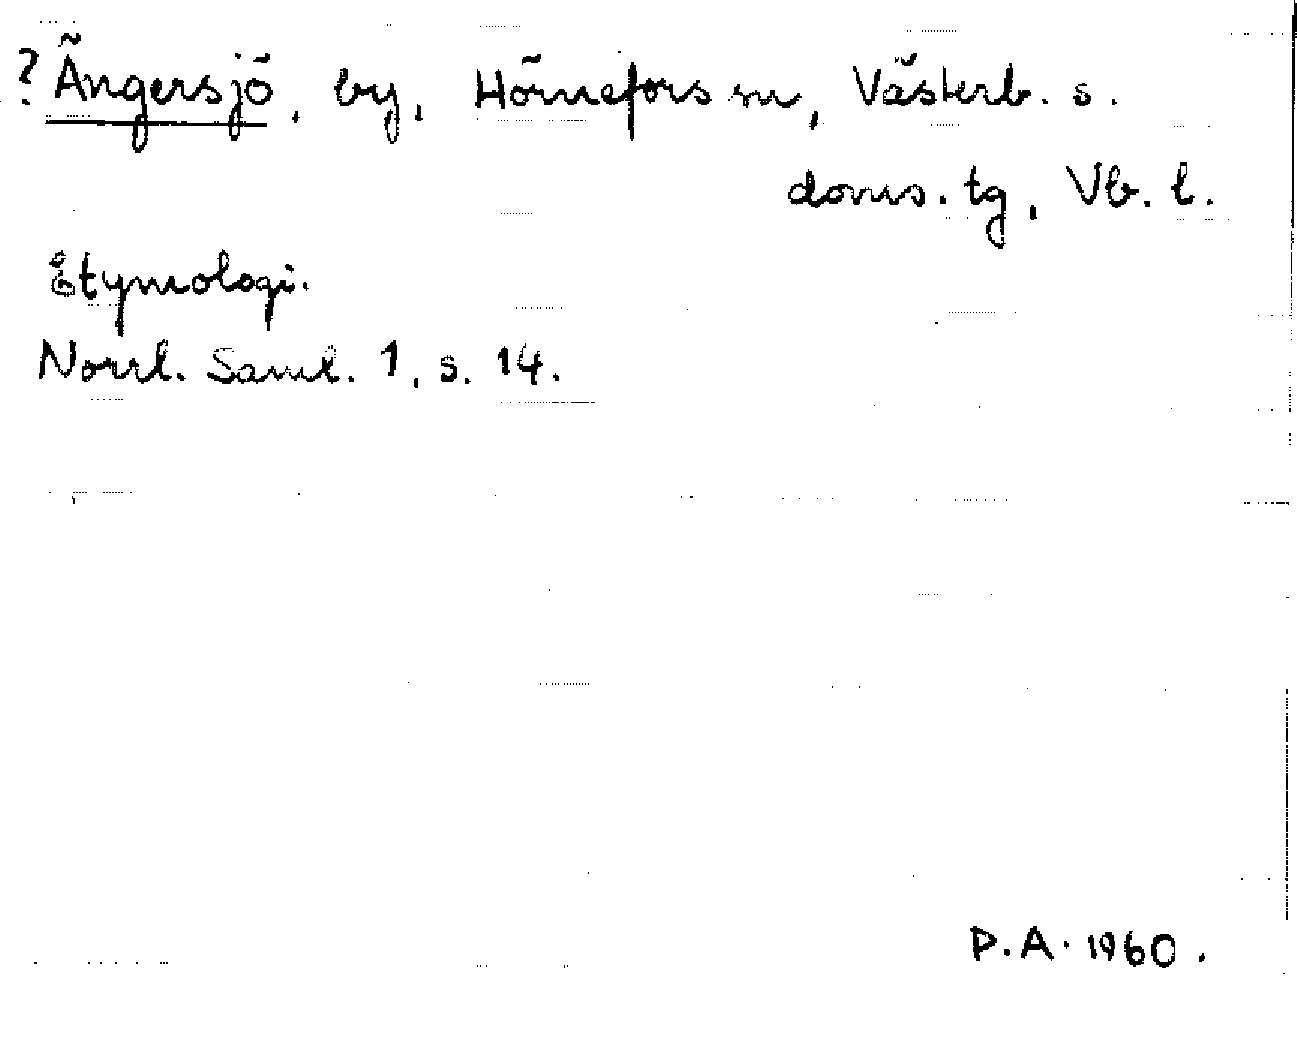 ? Ängersjö, by, Hörnefors sn, Västerb. s.
doms. tg, Vb. l.
Etymologi.
Norrl. Saml. 1, s. 14.
D.A. 1960.